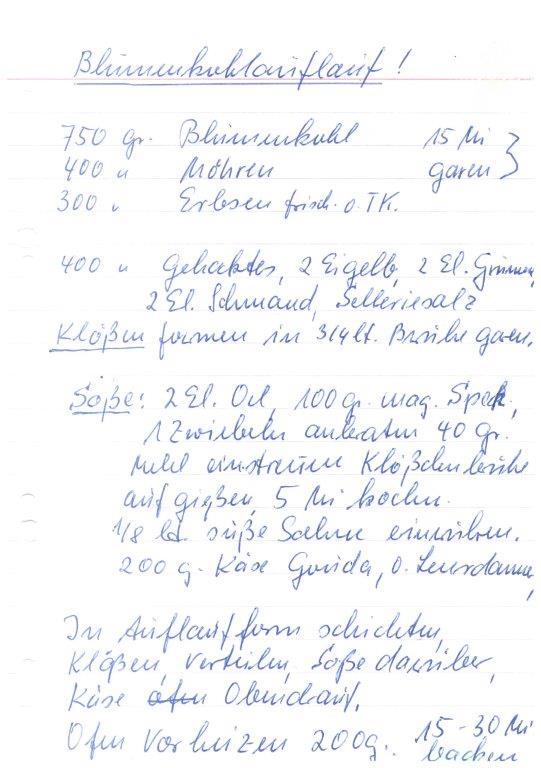 Blumenkohlauflauf!
750 gr. Blumenkohl 15 Mi
400 " Möhren garen
300 " Erbsen frisch o. TK.
400 " Gehaktes, 2 Eigelb, 2 El.
2 El. Schmand, Selleriesalz
Klößen formen in 3/4 lt. Brühe garen.
Soße: 2 El. Oel, 100 gr. mag. Speck,
1 Zwiebeln anbraten 40 gr.
Mehl einstreuen Klößchenbrühe
auf gießen, 5 Mi kochen.
1/8 lt. süße Sahne einrühren.
200 g. Käse Gouda, o. Leerdamme,
In Auflaufform schichten,
Klößen, verteilen, Soße darüber,
Käse ofen Obendrauf,
Ofen Vorheizen 200g. 15-30 Mi
backen